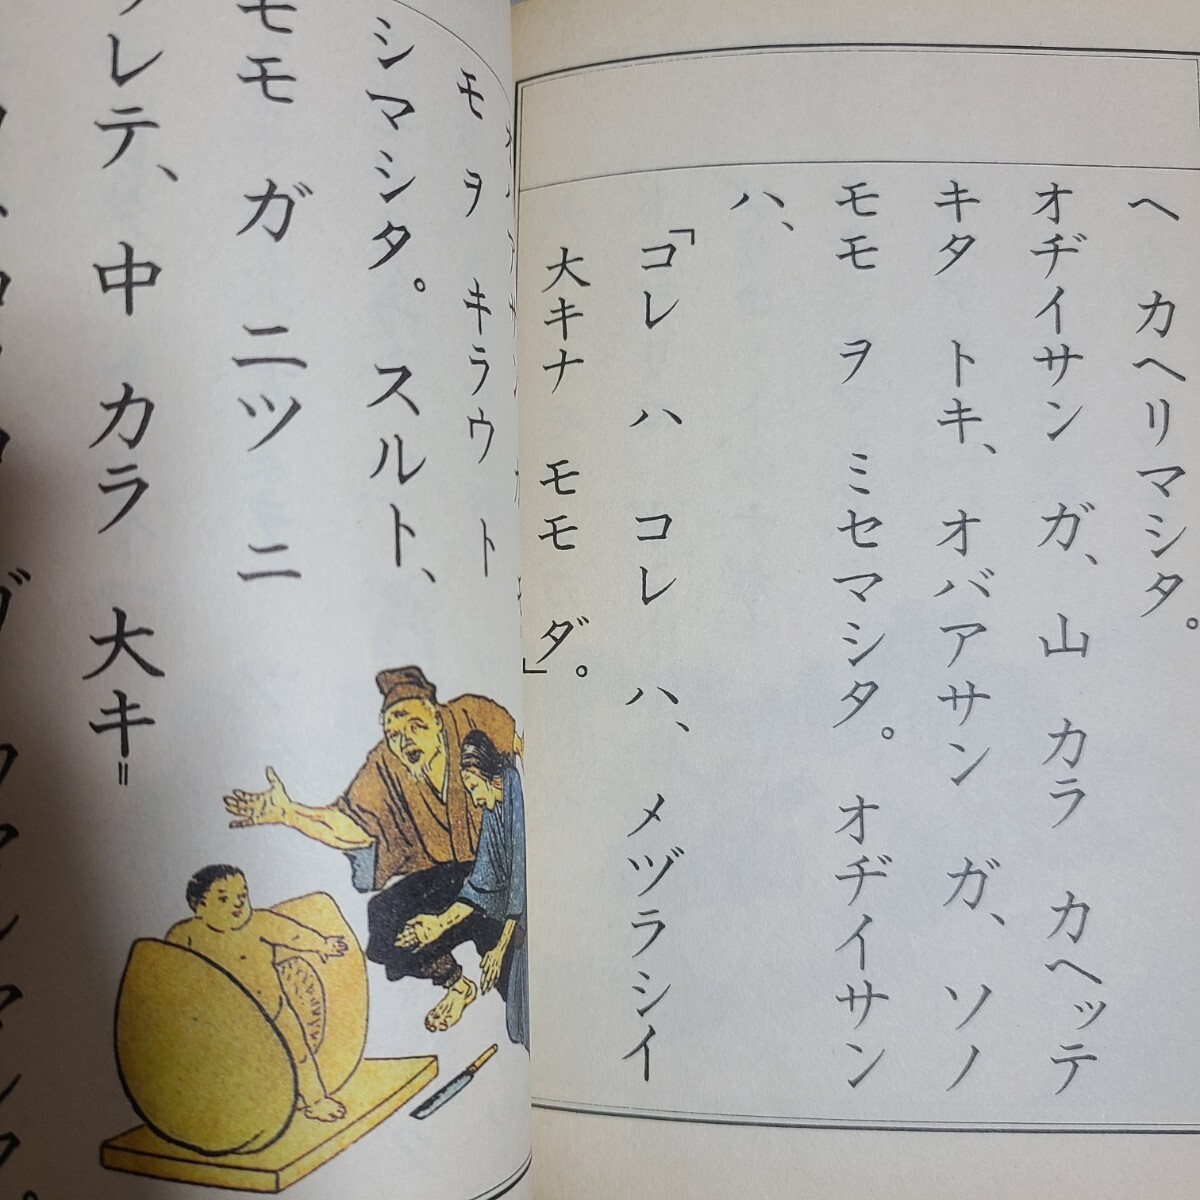 ヘ カヘリマシタ。
オヂイサン ガ、山 カラ カヘッテ
キタ トキ、オバアサン ガ、ソノ
モモ ヲ ミセマシタ。オヂイサン
ハ、
「コレ ハ コレ ハ、メヅラシイ
大キナ モモ ダ。」
モヲ キラウ ト
シマシタ。スルト、
モモ ガ 二ツ ニ
レテ、中 カラ 大キ